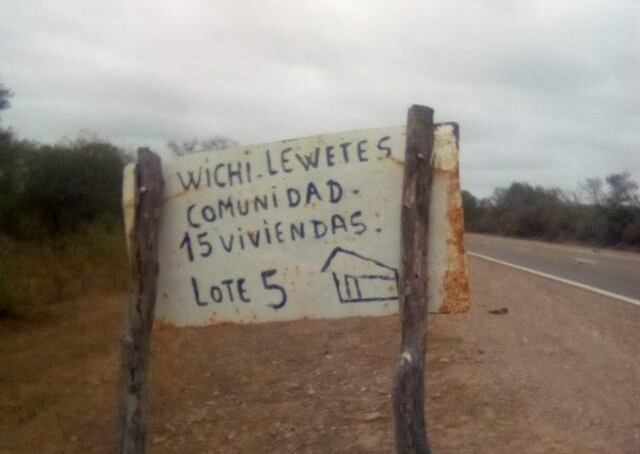 WICHI.LEWETES
COMUNIDAD.
15 VIVIENDAS.
LOTE 5